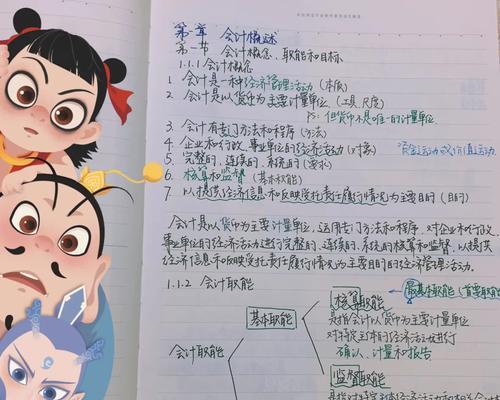 第一章 会计概述
第一节 会计概念、职能和目标
1.1.1 会计概念
1. 会计是一种经济管理活动 (本质)
2. 会计是以货币为主要计量单位 (工具、尺度)
PS: 但货币不是唯一的计量单位
3. 会计有专门方法和程序 (方法)
4. 企业和行政、事业单位的经济活动 (对象) 资金运动或价值运动
5. 完整的、连续的、系统的 (要求)
6. 核算和监督 (基本职能)
7. 以提供经济信息和反映受托责任履行情况为主要目的 (目的)
会计是以货币为主要计量单位,运用专门方法和程序,对企业和行政、
事业单位的经济活动进行完整的、连续的、系统的核算和监督,以提供
经济信息和反映受托责任履行情况为主要目的的经济管理活动。
1.1.2 会计职能
最基本职能 (首要职能
核算职能
是指会计以货币为主要计量单位
对特定主体的经济活动进行
确认、计量和报告
基本职能
会计职能
监督职能
是指对特定主体经济活动和相关会计